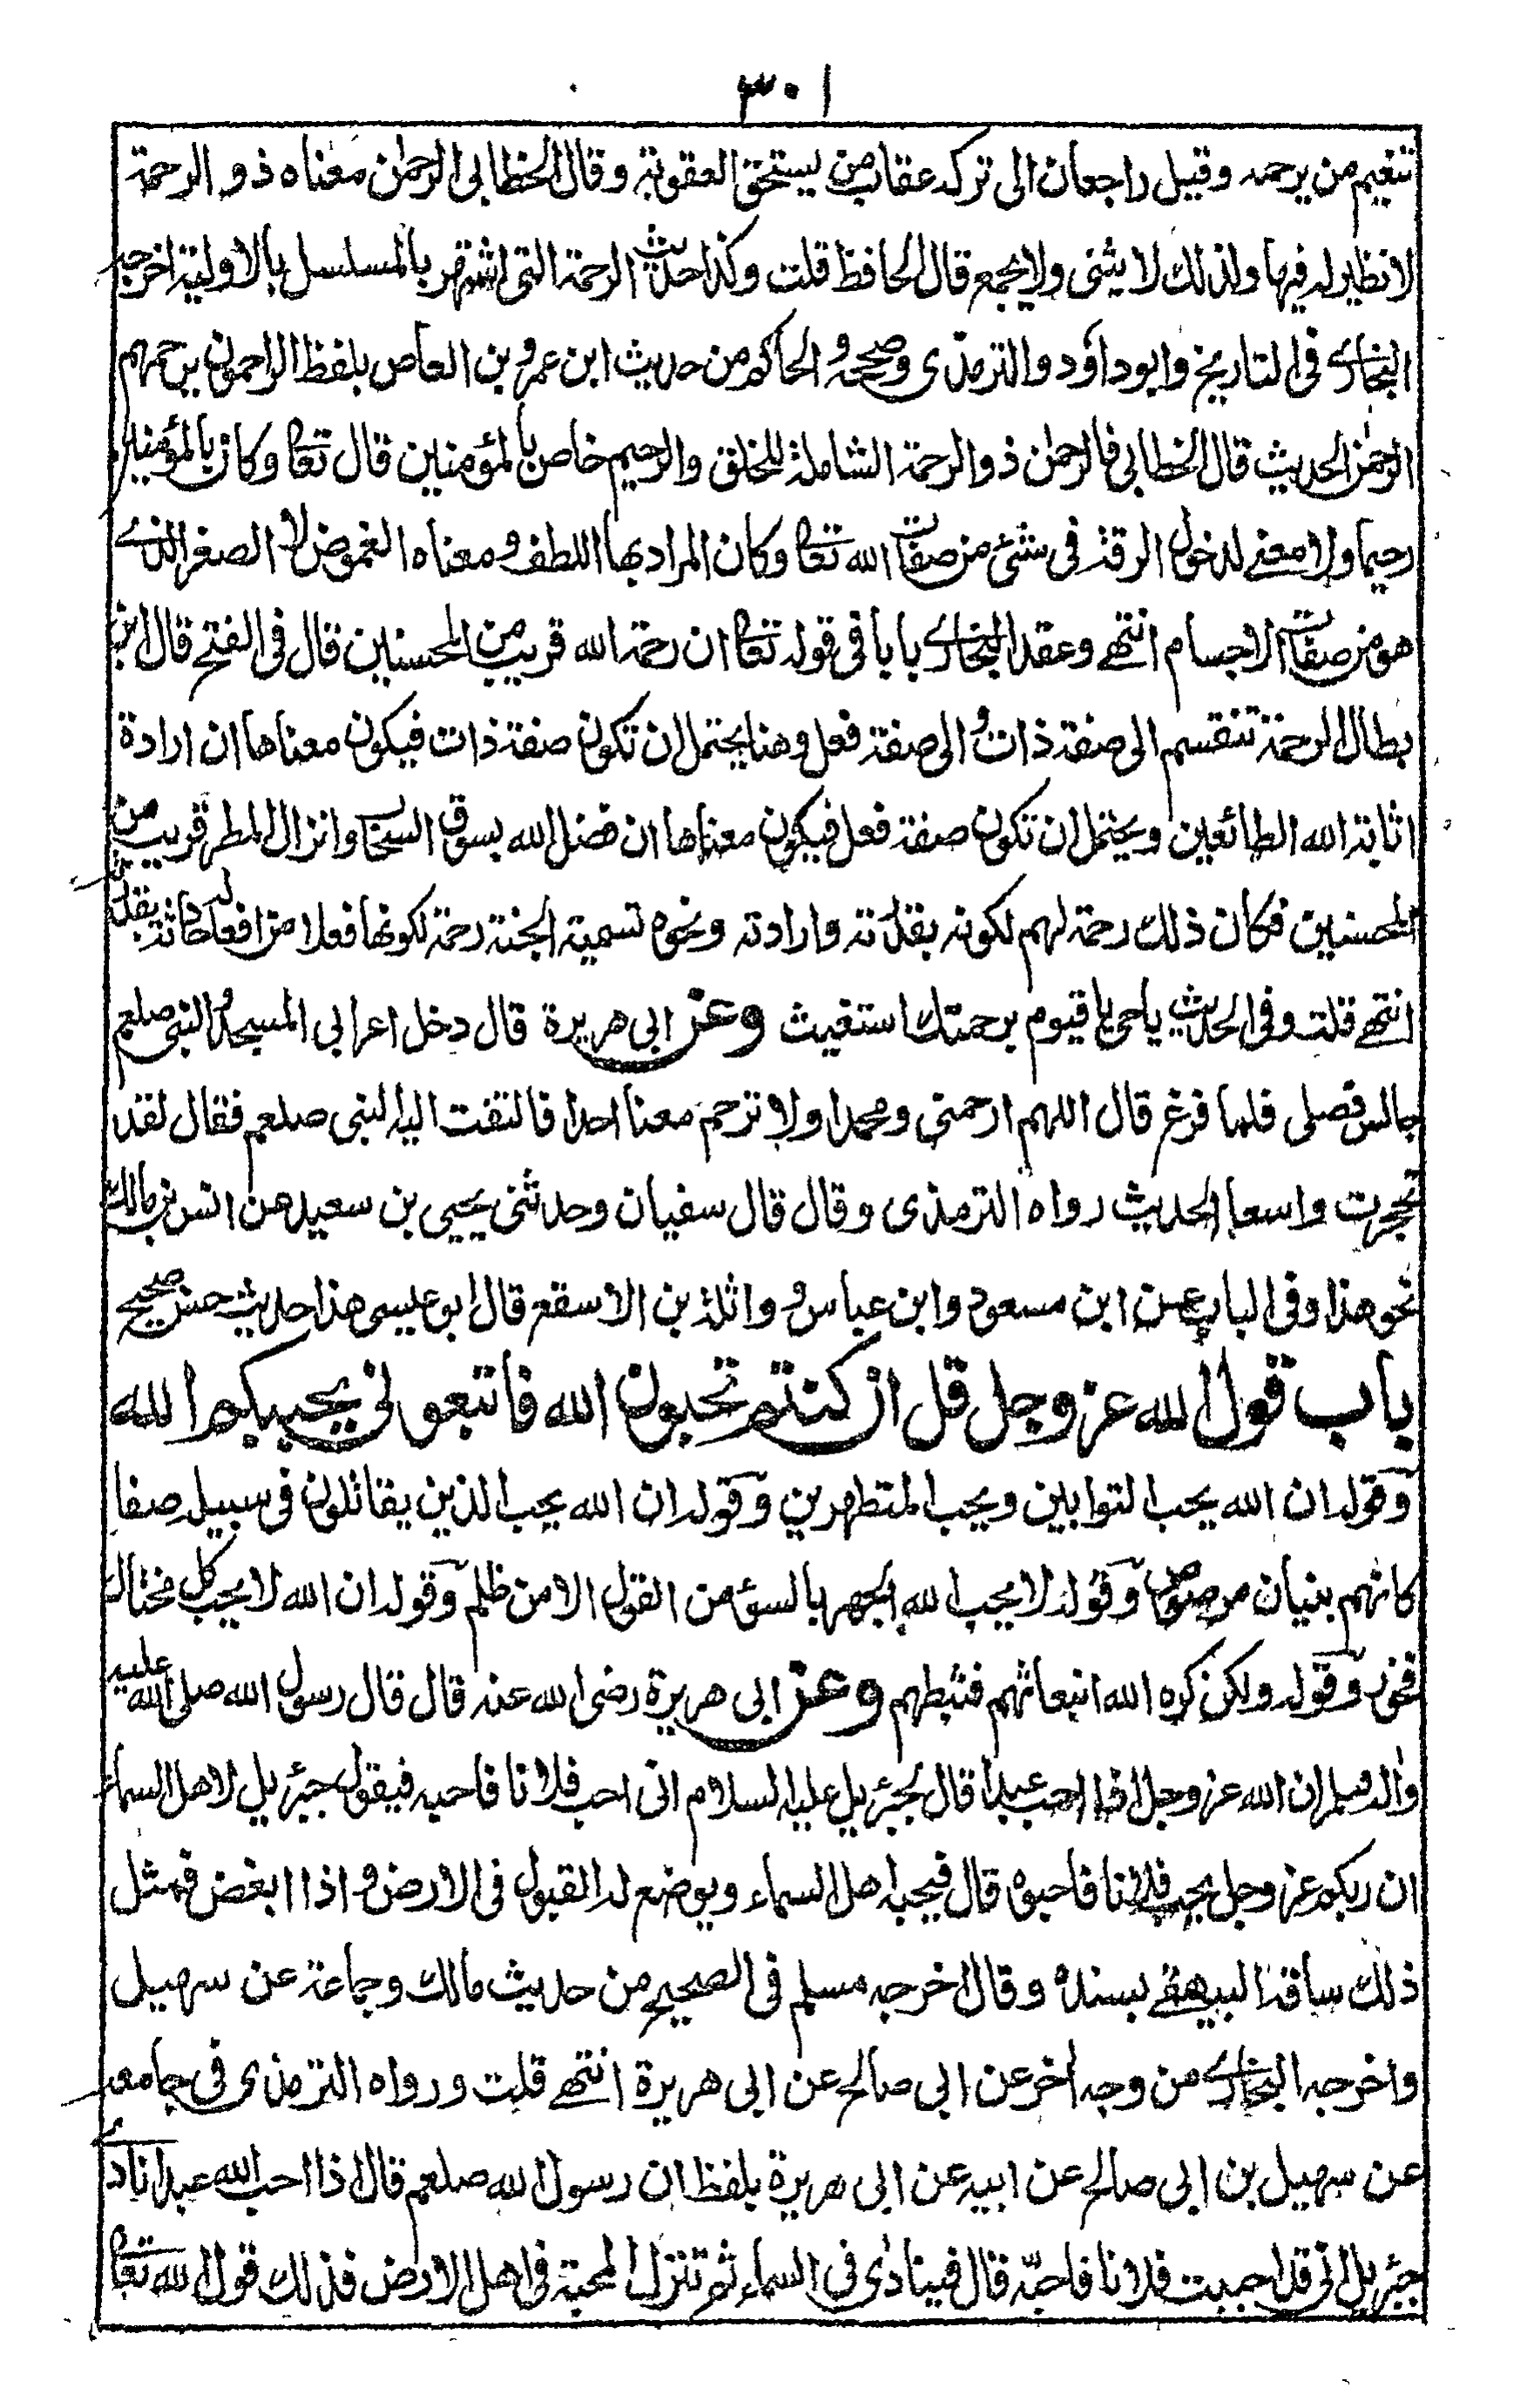 ٣٠١
تنعيم من يرحمه وقيل راجعان الى تركه عقاب من يستحق العقوبة وقال الخطابي الرحمٰن معناه ذو الرحمة
لا نظير له فيها ولذلك لا يثنى ولا يجمع قال الحافظ قلت وكذا حديث الرحمة التى اشتهر بالمسلسل بالاولية اخرجه
البخارى فى التاريخ وابو داؤد والترمذى وصححه و الحاكم من حديث ابن عمرو بن العاص بلفظ الراحمون يرحمهم
الرحمٰن الحديث قال الخطابى فالرحمٰن ذو الرحمة الشاملة للخلق والرحيم خاص بالمؤمنين قال تعا وكان بالمؤمنين
رحيما ولا معنے لدخول الرقة فى شئ من صفات الله تعا وكان المراد بها اللطف و معناه الغموض لا الصغر الذے
هو من صفات الاجسام انتهے وعقد البخارى بابا فى قوله تعا ان رحمة الله قريب من المحسنين قال فى الفتح قال ابن
بطال الرحمة تنقسم الى صفة ذات و الى صفة فعل وهنا يحتمل ان تكون صفة ذات فيكون معناها ان ارادة
اثابة الله الطائعين ويحتمل ان تكون صفة فعل فيكون معناها ان فضل الله بسوق السحاب وانزال المطر قريب من
المحسنين فكان ذلك رحمة لهم لكونه بقدرته وارادته ونحوه تسمية الجنة رحمة لكونها فعلا من افعاله حادثة بقدرته
انتهے قلت وفى الحديث ياحى يا قيوم برحمتك استغيث وعن ابى هريرة قال دخل اعرابى المسجد و النبى صلعم
جالس فصلى فلما فرغ قال اللهم ارحمنى ومحمدا ولا ترحم معنا احدا فالتفت اليه النبى صلعم فقال لقد
تحجرت واسعا الحديث رواه الترمذى وقال قال سفيان وحدثنى يحيى بن سعيد عن انس بن مالك
نحو هذا وفى الباب عن ابن مسعود وابن عباس و واثلة بن الاسقع قال ابو عيسى هذا حديث حسن صحيح
باب قول الله عز وجل قل ان كنتم تحبون الله فاتبعونى يحببكم الله
وقوله ان الله يحب التوابين ويحب المتطهرين وقوله ان الله يحب الذين يقاتلون فى سبيله صفا
كانهم بنيان مرصوص وقوله لا يحب الله الجهر بالسؤ من القول الا من ظلم وقوله ان الله لا يحب كل مختال
فخور وقوله ولكن كره الله انبعاثهم فثبطهم وعن ابى هريرة رضى الله عنه قال قال رسول الله صلى الله عليه
واله وسلم ان الله عز وجل اذا احب عبدا قال لجبرئيل عليه السلام انى احب فلانا فاحبه فيقول جبرئيل لاهل السماء
ان ربكم عز وجل يحب فلانا فاحبوه قال فيحبه اهل السماء ويوضع له القبول فى الارض و اذا ابغض فمثل
ذلك ساقه البيهقے بسنده وقال اخرجه مسلم فى الصحيح من حديث مالك وجماعة عن سهيل
واخرجه البخارى من وجه اٰخر عن ابى صالح عن ابى هريرة انتهے قلت ورواه الترمذى فى جامعه
عن سهيل بن ابى صالح عن ابيه عن ابى هريرة بلفظ ان رسول الله صلعم قال اذا احب الله عبدا نادى
جبرئيل انى قد احببت فلانا فاحبّه قال فينادى فى السماء ثم تنزل المحبة فى اهل الارض فذلك قول الله تعا